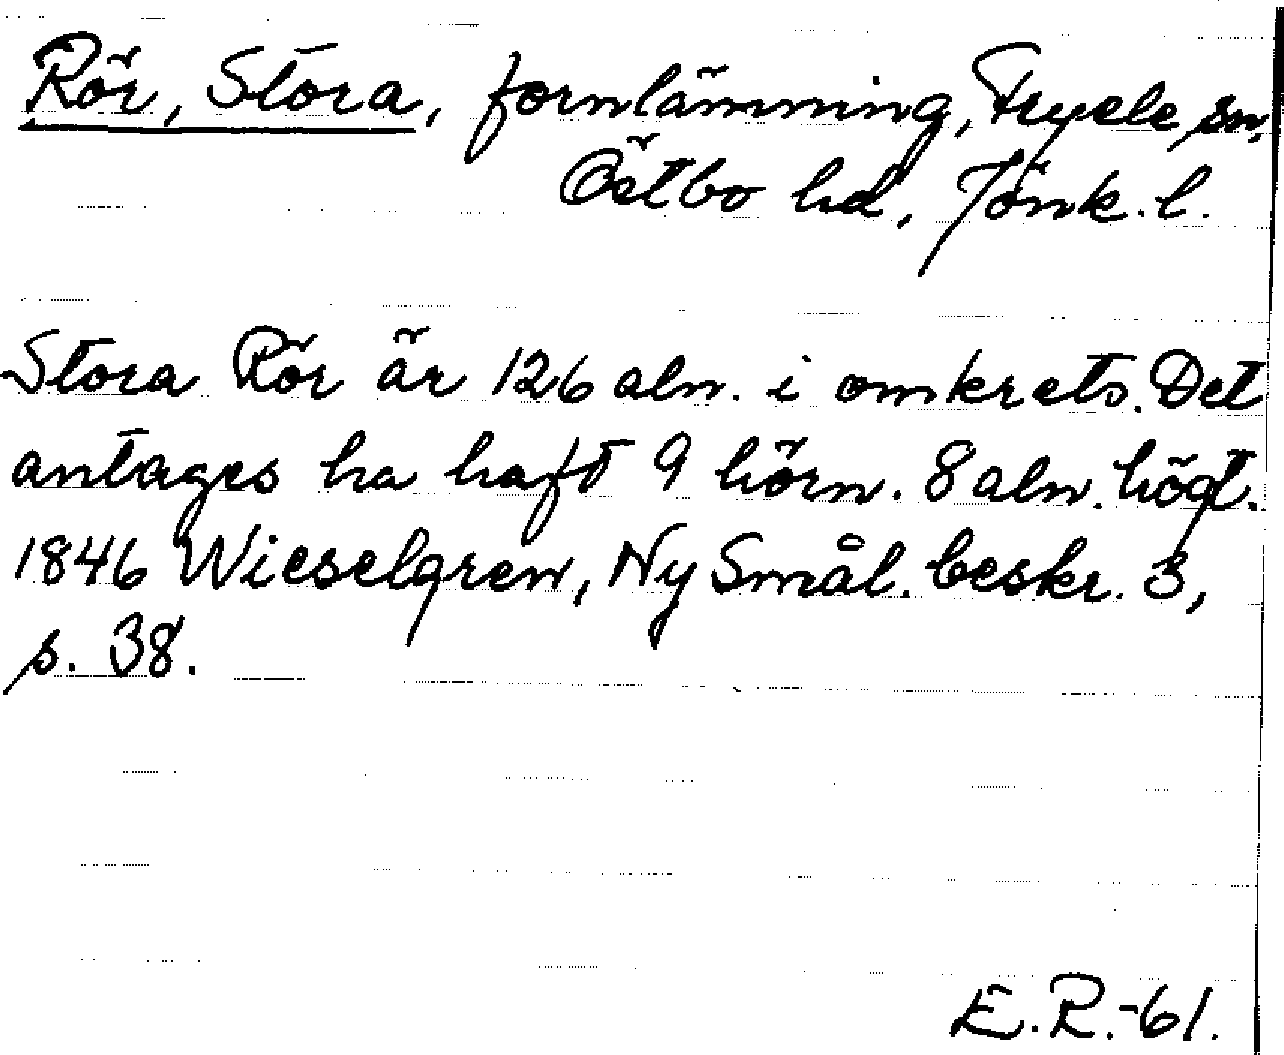 Rör, Stora, fornlämning, Fryele sn,
Östbo hd, Jönk. l.
Stora Rör är 126 aln. i omkrets. Det
antages ha haft 9 hörn. 8 aln. högt.
1846 Wieselgren, Ny Smål. beskr. 3,
s. 38.
E. R. -61.